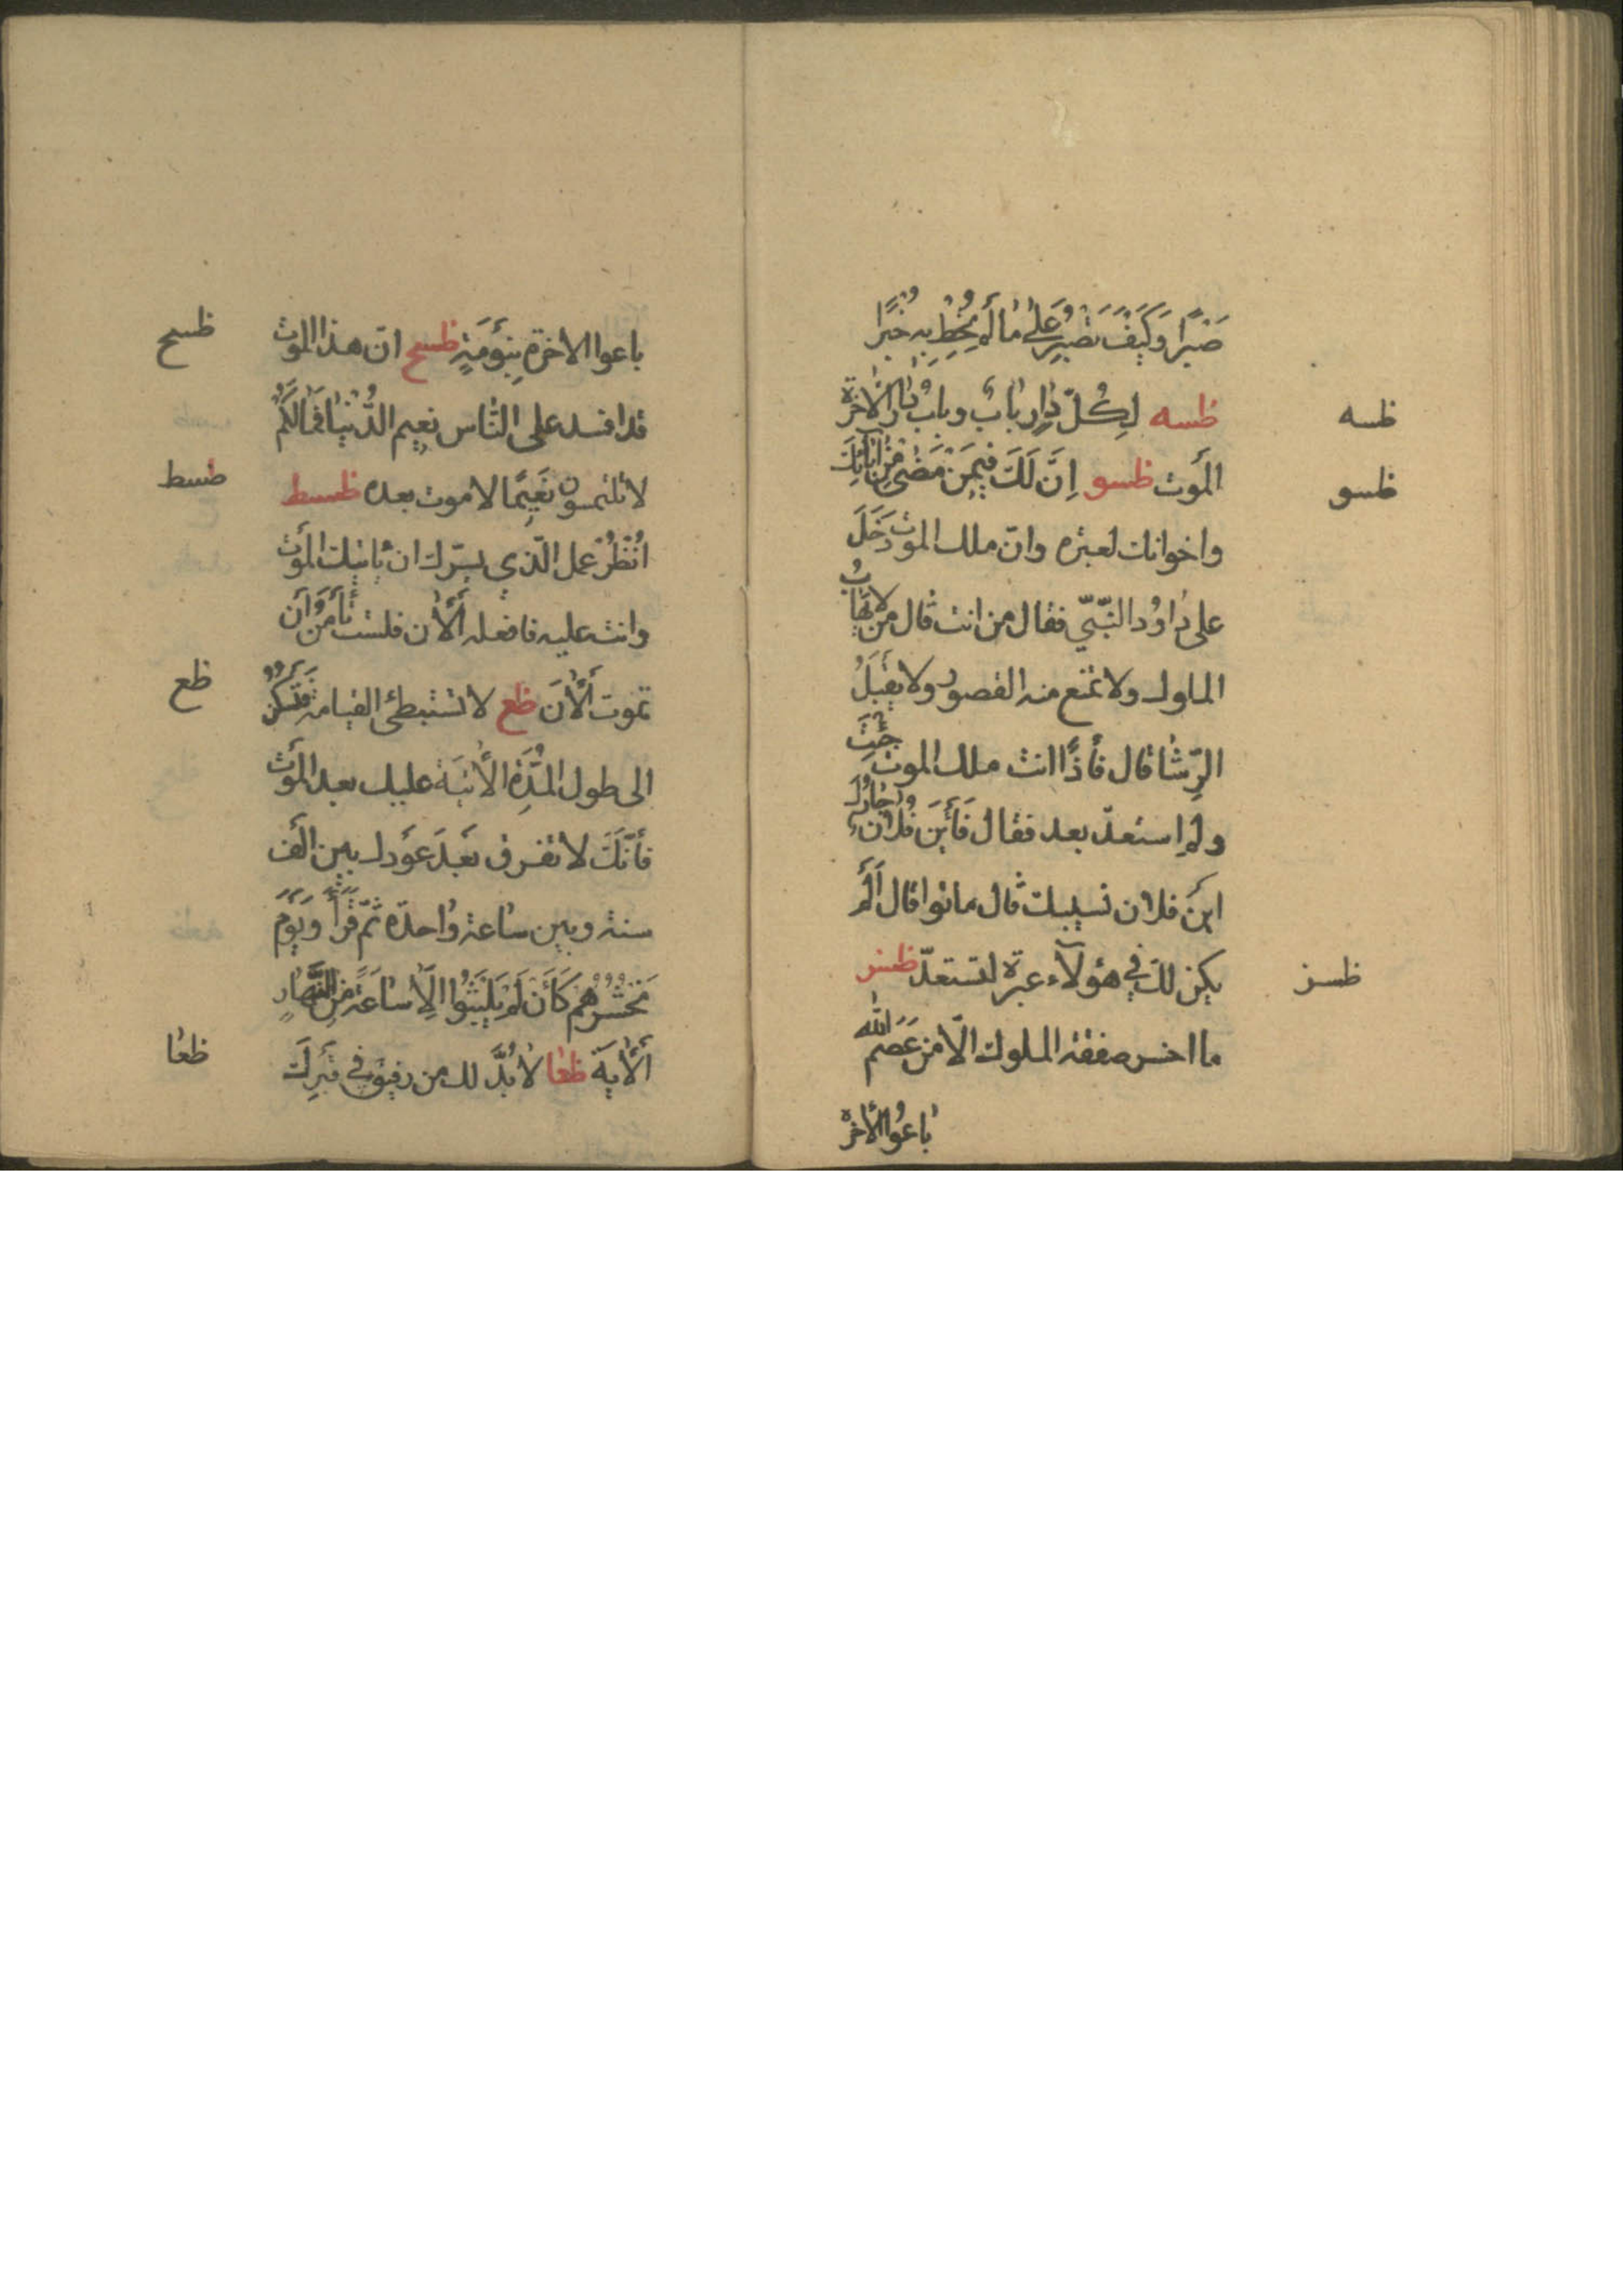 صَبْرًا وَكَيْفَ تَصْبِرُ عَلٰى مٰا لَمْ تُحِطْ بِهِ خُبْرًا
ظسه
ظسه لِكُلّ دٰارٍ بٰابٌ وبٰابُ دٰارِ الْاخرة
ظسو
الْمَوت ظسو اِنَّ لَكَ فِيمَنْ مَضٰى مِنْ اٰبٰائِكَ
واخوانك لعبره وانّ ملك الموت دَخَلَ
على دٰاوُد النّبّي فقال من انت قال من لا يَهٰابُ
الملوك ولا تمنع منه القصور ولا يقْبَلُ
الرِّشٰا قال فأذًا انت ملك الموت جِئْتَ
ولم استعدّ بعد فقال فَأَيْنَ فُلٰان جٰارُكَ
اين فلان نسيبك قال ماتوا قال أَلَمْ
يكن لك في هؤلآء عبرة لتستعدّ ظسز
ظسز
ما اخسر صفقة الملوك الّا من عَصَمَ اللّٰه
بٰاعُوا الْأخرة
ظسح
باعوا الاخرة بِنَوْمَةٍ ظسح انّ هذا الموت
قد افسد على النّاس نعيم الدُّنْيٰا فَمٰا لَكُمْ
ظسط
لا تلتمسون نَعِيمًا لا موت بعده ظسط
اُنْظُرْ عمل الّذي يسّرك ان يأتيك الْمَوْت
وانت عليه فافعله أَلْأٰن فلست تَأْمَنُ أَن
ظع
تموت أَلْأٰنَ ظع لا تستبطئ القيامة فَتَسْكُنُ
الى طول الْمُدَّةِ الْأٰتِيَة عليك بعد الْمَوْت
فأَنَّكَ لا تفرق بَعْدَ عَوْدك بين أَلْف
سنة وبين سٰاعة وٰاحدة ثمّ قَرَأَ وَيَوْمَ
نَحْشُرُهُمْ كَأَنْ لَمْ يَلْبَثُوا اِلّٰا سٰاعَةً مِنَ النَّهٰارِ
ظعٰا
أَلْأٰيَة ظعٰا لٰا بُدَّ لك من رفيق في قَبْرِكَ